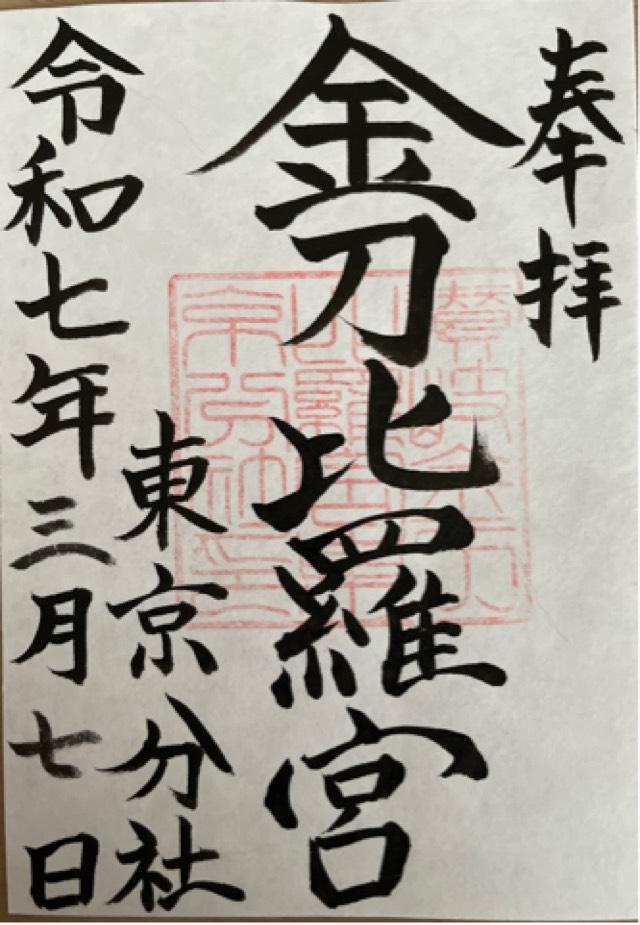 奉拝
金刀比羅宮
東京分社
令和七年三月七日